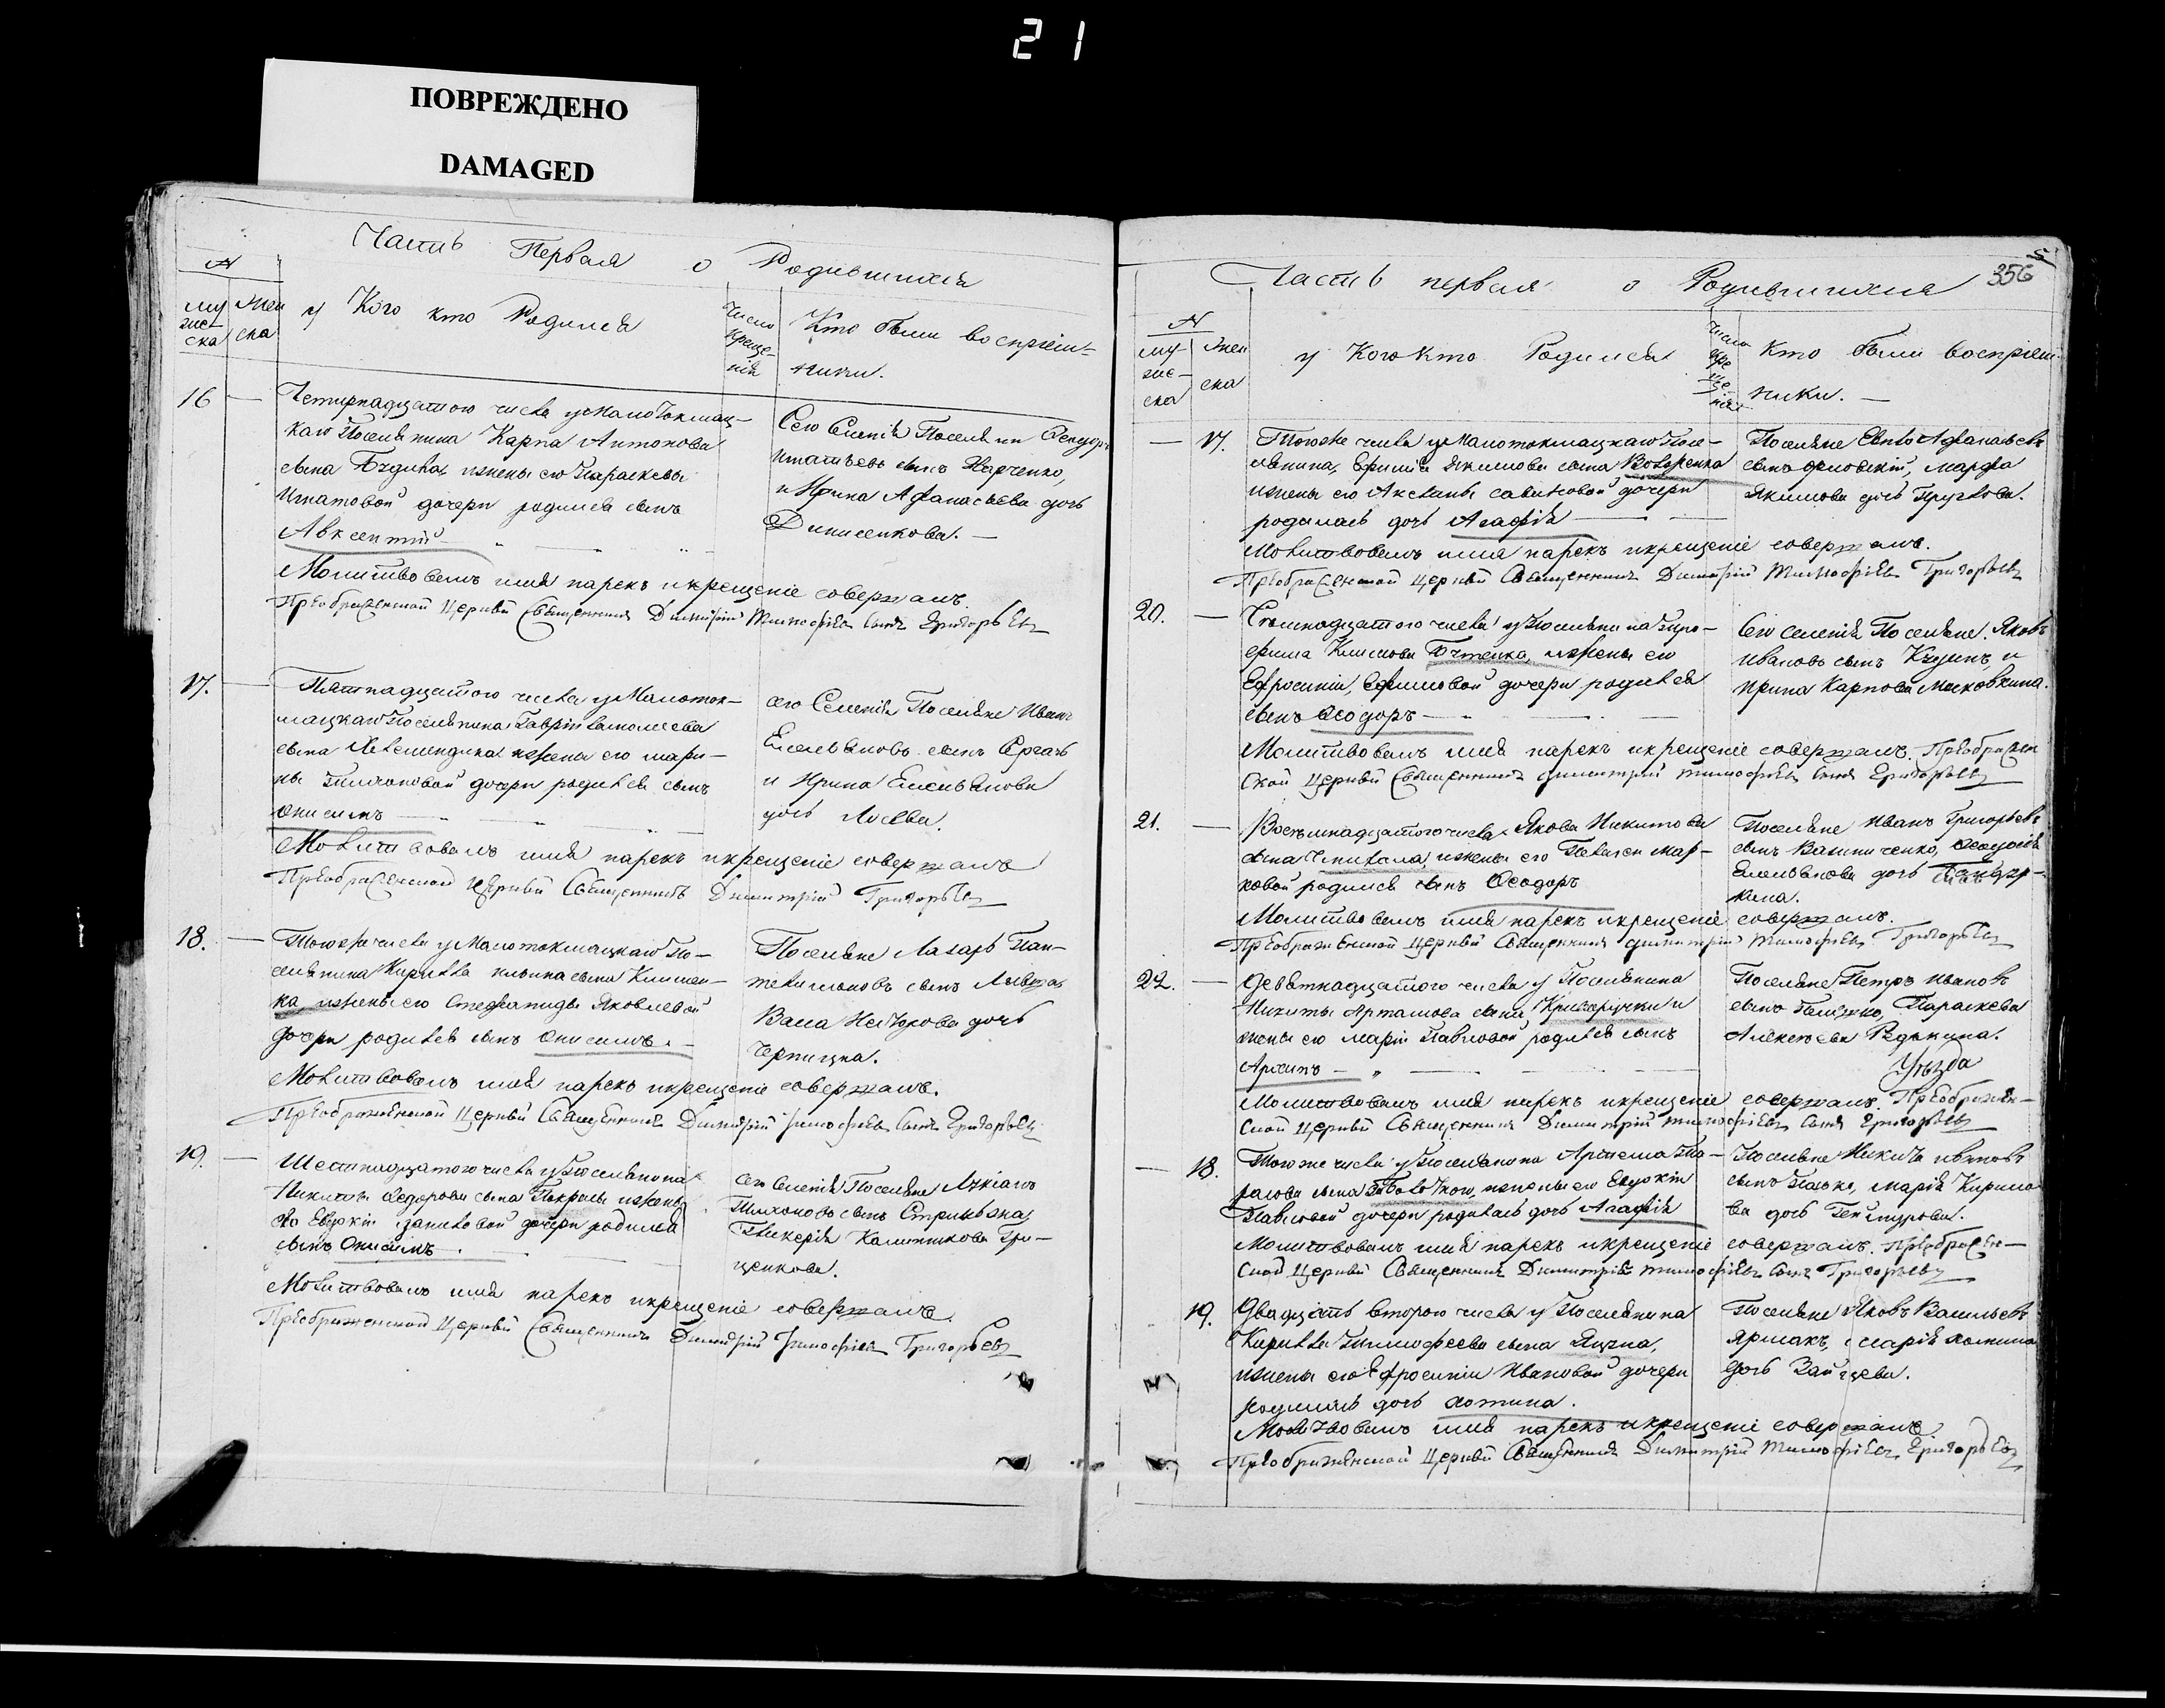 21
ПОВРЕЖДЕНО
DAMAGED
Часть Первая о Родившихся
№
му
жес
ска
жен
ска
У Кого кто Родился
Число
Креще-
нія
Кто были воспріем-
ники.
16 — Четырнадцатого числа у Малотокмац-
каго Поселянина Карпа Антонова
сына и жены его Параскевы
Игнатовой дочери родился сынъ
Авксентій
Сего Селенія Поселянин
Игнатьевъ сынъ Харченко,
и Ирина Афанасьева дочь
Денисенкова. —
Молитвовалъ имя нарекъ и крещеніе совершалъ.
Преображенской Церкви Священникъ Димитрій Тимофіевъ сынъ Григорьевъ
17. — Пятнадцатого числа у Малоток-
мацкаго Поселянина
сына и жены его Мари-
ны Тихоновой дочери родился сынъ
Онисимъ
Сего Селенія Поселяне Иванъ
Емельяновъ сынъ Сергачь
и Ирина Емельянова
дочь Лосева.
Молитвовалъ имя нарекъ и крещеніе совершалъ
Преображенской Церкви Священникъ Димитрій Григорьевъ
18. — Тогоже числа у Малотокмацкаго По-
селянина Кирилла Ильина сына Климен-
ка и жены его Стефаниды Яковлевой
дочери родился сынъ Онисимъ. —
Поселяне Лазарь Пан-
телимоновъ сынъ
дочь
Молитвовалъ имя нарекъ и крещеніе совершалъ.
Преображенской Церкви Священникъ Димитрій Тимофіевъ сынъ Григорьевъ
19. — Шестнадцатого числа у Поселянина
Никиты Федорова сына и жены
его Евдокіи дочери родился
сынъ Онисимъ
Сего Селенія Поселяне
Тихоновъ сынъ
Гликерія Гри-
ценкова.
Молитвовалъ имя нарекъ и крещеніе совершалъ.
Преображенской Церкви Священникъ Димитрій Тимофіевъ Григорьевъ
Часть первая о Родившихся
356
№
му-
жес-
ска
жен
ска
У Кого кто Родился
Число
кре
ще
нія
Кто были воспріем-
ники. —
— 17. Тогоже числа у Малотокмацкаго Посе-
лянина, Ефима Якимова сына
и жены его Аксиньи Савиновой дочери
родилась дочь Агафія
Поселяне Афанасьевъ
сынъ Орловскій, Марфа
Якимова дочь Круглова.
Молитвовалъ имя нарекъ и крещеніе совершалъ.
Преображенской Церкви Священникъ Димитрій Тимофіевъ Григорьевъ
20. — Семнадцатого числа у Поселянина
Климова и жены его
Ефросиніи, Ефимовой дочери родился
сынъ Феодоръ
Сего Селенія Поселяне Яковъ
Ивановъ сынъ и
Ирина Карпова Московкина.
Молитвовалъ имя нарекъ и крещеніе совершалъ. Преображен
ской Церкви Священникъ Димитрій Тимофіевъ сынъ Григорьевъ
21. — Восемнадцатого числа Якова Никитова
сына и жены его Пелагеи Мар-
ковой родился сынъ Феодоръ
Поселяне Иванъ Григорьевъ
сынъ Феодосія
Емельянова дочь
кина.
Молитвовалъ имя нарекъ и крещеніе совершалъ.
Преображенской Церкви Священникъ Димитрій Тимофіевъ Григорьевъ
22. — Девятнадцатого числа у Поселянина
Никиты Артамова сына Криворучки и
жены его Маріи Павловой родился сынъ
Архипъ
Поселяне Петръ Ивановъ
сынъ Параскева
Алексеева Редькина.
Молитвовалъ имя нарекъ и крещеніе совершалъ. Преображен-
ской Церкви Священникъ Димитрій Тимофіевъ сынъ Григорьевъ
— 18. Тогоже числа у Поселянина Артема
сына и жены его Евдокіи
Павловой дочери родилась дочь Агафія
Поселяне Никита Ивановъ
сынъ Марія Кирило-
ва дочь
Молитвовалъ имя нарекъ и крещеніе совершалъ. Преображен-
ской Церкви Священникъ Димитрій Тимофіевъ сынъ Григорьевъ
19. Двадцать второго числа у Поселянина
Кирилла Тимофеева сына Яцуна,
и жены его Ефросиніи Ивановой дочери
родилась дочь Фотина.
Поселяне Яковъ Васильевъ
Ярмакъ, Марія
дочь Зайцева.
Молитвовалъ имя нарекъ и крещеніе совершалъ.
Преображенской Церкви Священникъ Димитрій Тимофіевъ Григорьевъ